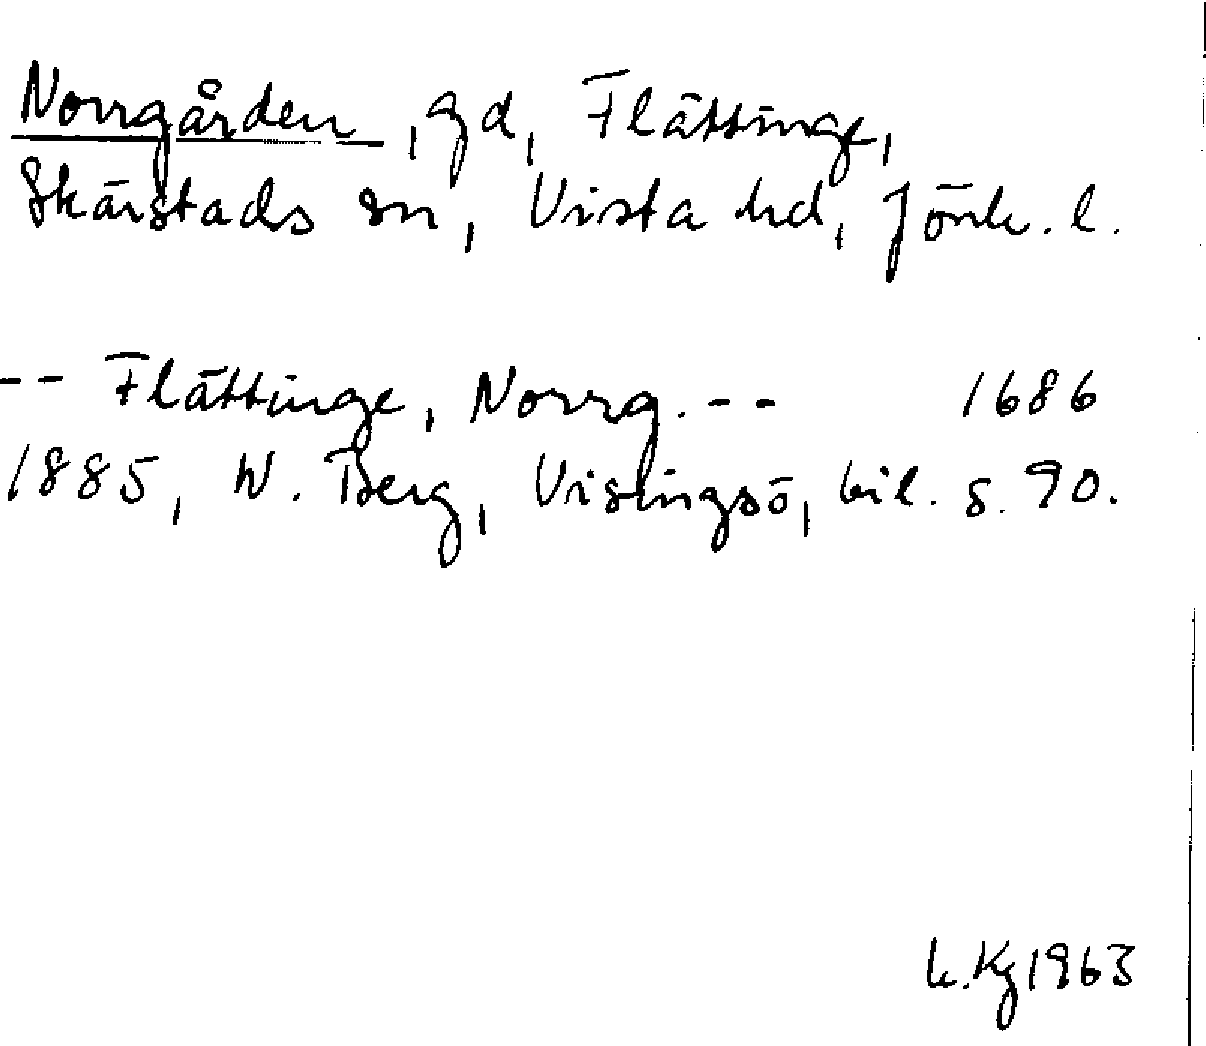 Norrgården, gd, Flättinge,
Skärstads sn, Vista hd, Jönk. l.
-- Flättinge, Norrg. -- 1686
1885, W. Berg, Visingsö, bil. s. 90.
k. Kg 1963